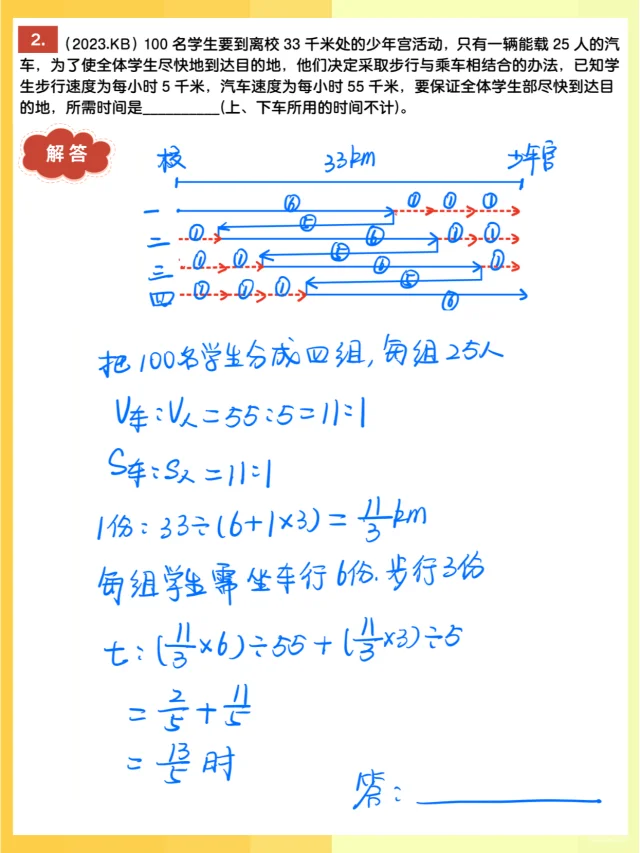 2. (2023.KB) 100 名学生要到离校 33 千米处的少年宫活动，只有一辆能载 25 人的汽
车，为了使全体学生尽快地到达目的地，他们决定采取步行与乘车相结合的办法，已知学
生步行速度为每小时 5 千米，汽车速度为每小时 55 千米，要保证全体学生部尽快到达目
的地，所需时间是__________(上、下车所用的时间不计)。
解答
校 33km 少年宫
一 ⑥ ① ① ①
⑤
二 ① ⑥ ① ①
⑤
三 ① ① ⑥ ①
⑤
四 ① ① ① ⑥
把100名学生分成四组，每组25人
V车:V人=55:5=11:1
S车:S人=11:1
1份：33÷(6+1×3)=11/3km
每组学生需坐车行6份.步行3份
t:(11/3×6)÷55+(11/3×3)÷5
=2/5+11/5
=13/5时
答：__________